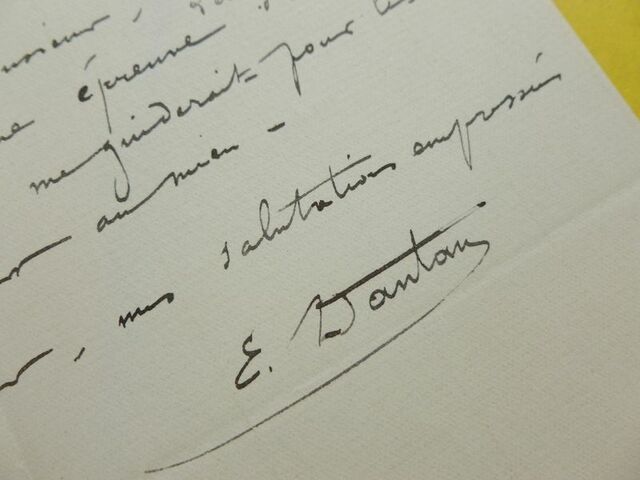 épreuve
me guiderait pour les
au mien -
, mes salutations empressées
E. Dantan